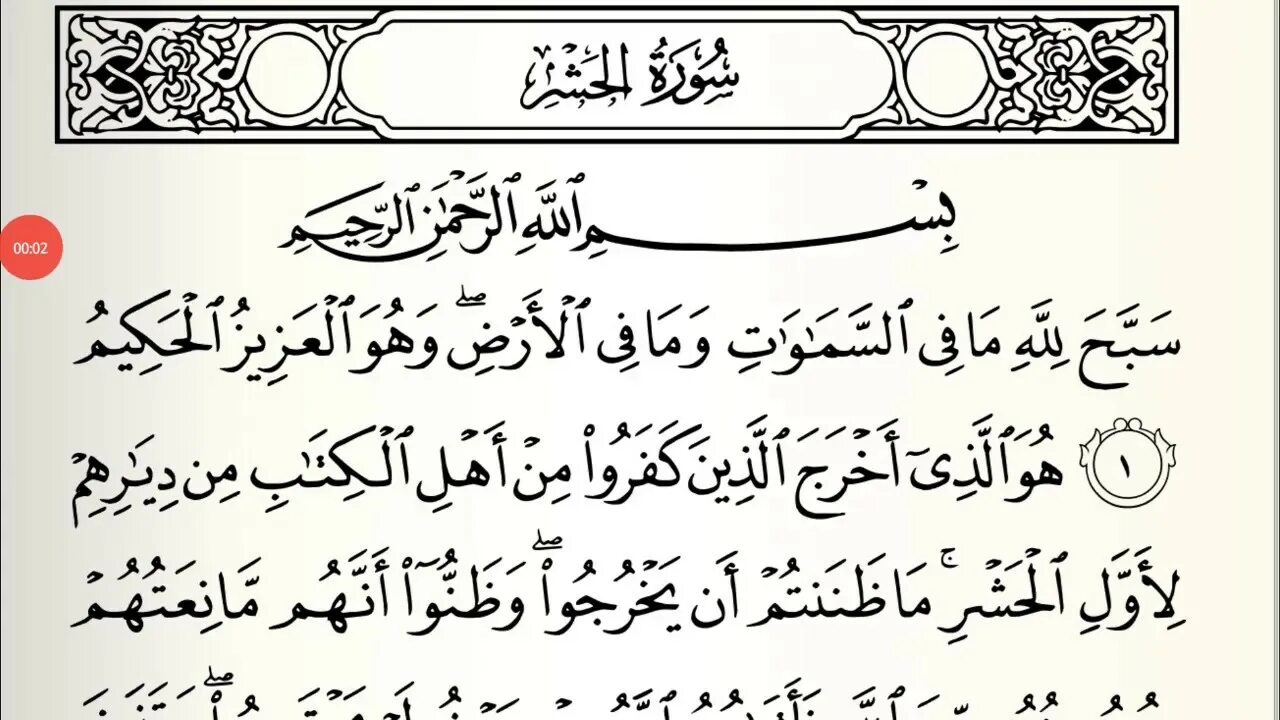 سُورَةُ الحَشْرِ
بِسْمِ ٱللَّهِ ٱلرَّحْمَٰنِ ٱلرَّحِيمِ
00:02
سَبَّحَ لِلَّهِ مَا فِى ٱلسَّمَٰوَٰتِ وَمَا فِى ٱلْأَرْضِۖ وَهُوَ ٱلْعَزِيزُ ٱلْحَكِيمُ
١ هُوَ ٱلَّذِىٓ أَخْرَجَ ٱلَّذِينَ كَفَرُوا۟ مِنْ أَهْلِ ٱلْكِتَٰبِ مِن دِيَٰرِهِمْ
لِأَوَّلِ ٱلْحَشْرِۚ مَا ظَنَنتُمْ أَن يَخْرُجُوا۟ۖ وَظَنُّوٓا۟ أَنَّهُم مَّانِعَتُهُمْ